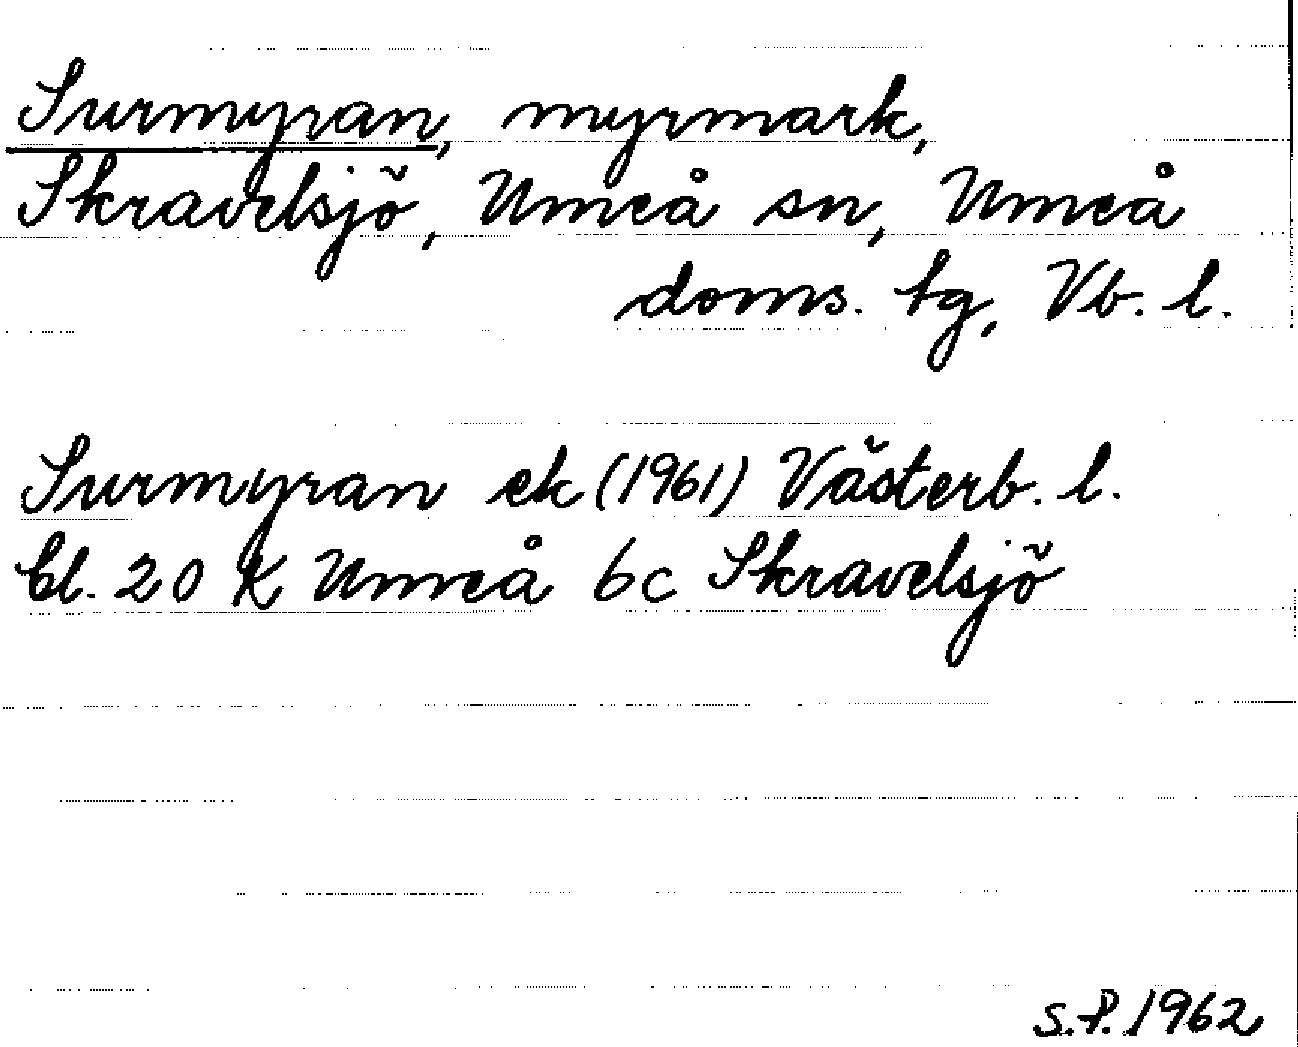 Surmyran, myrmark,
Skravelsjö, Umeå sn, Umeå
doms. tg, Vb. l.
Surmyran ek (1961) Västerb. l.
bl. 20 K Umeå 6c Skravelsjö
S.P. 1962